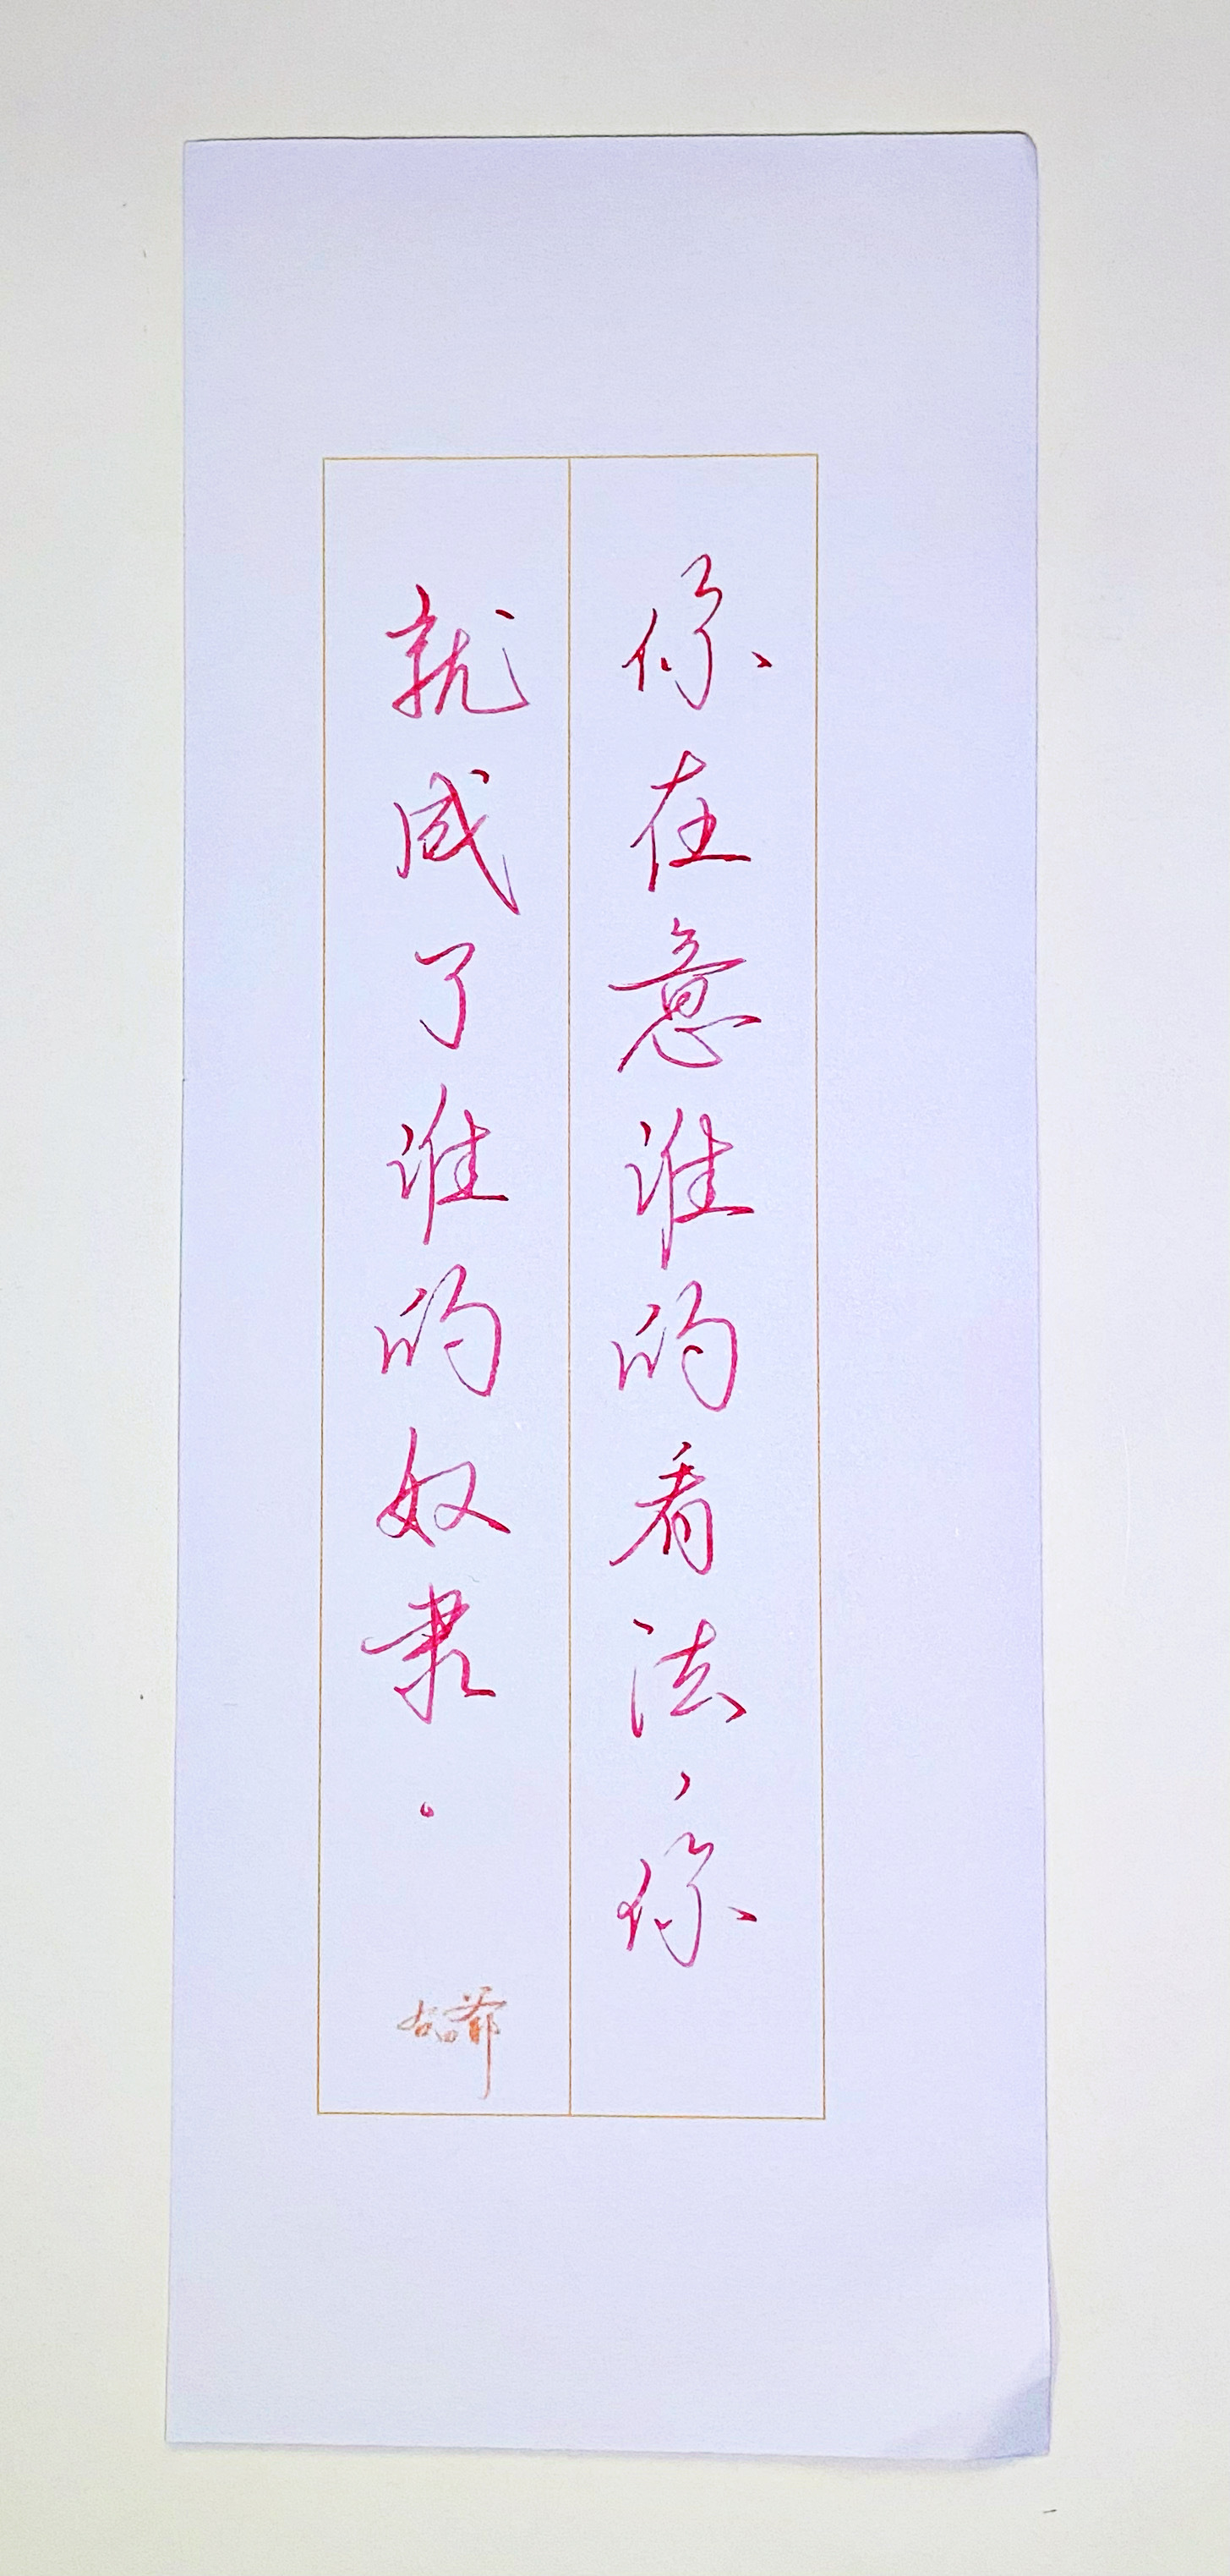 你在意谁的看法，你
就成了谁的奴隶。